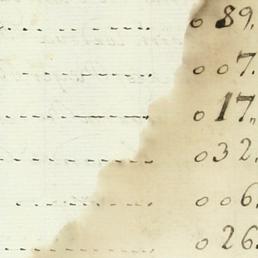 089.
007.
017.
032.
006.
026.